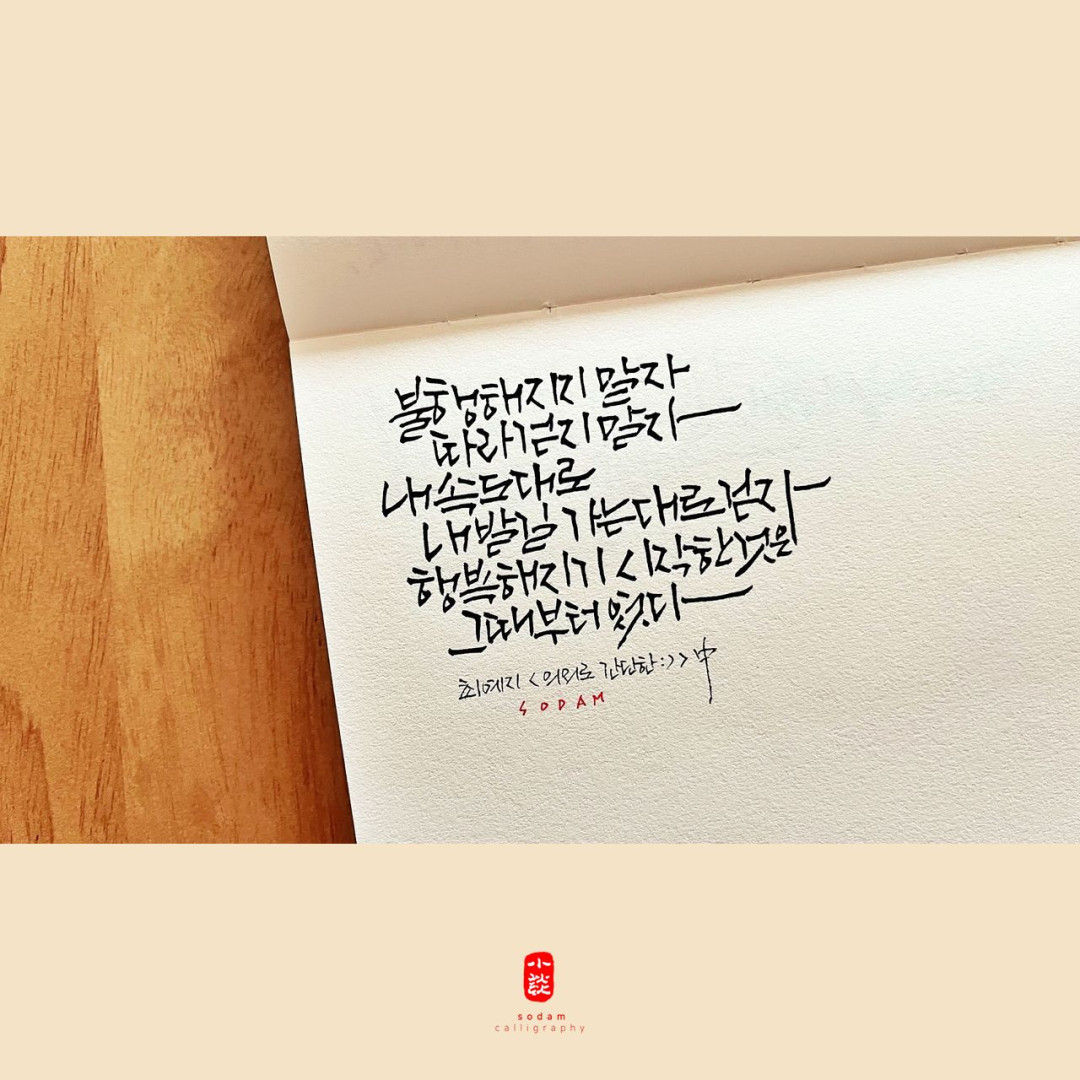 불행해지지 말자
따라걷지 말자
내 속도대로
내 발길 가는대로 걷자
행복해지기 시작한것은
그때부터 였다
최예지 <의외로 간단한:)> 中
SODAM
小談
sodam
calligraphy